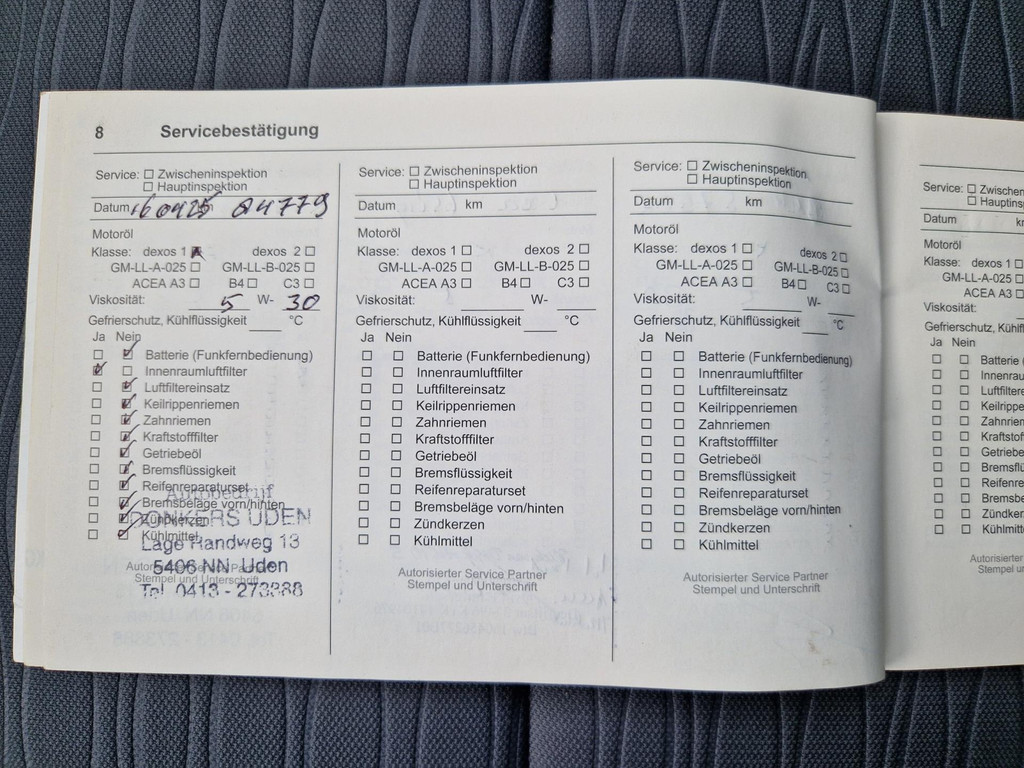 8 Servicebestätigung
Service: ☐ Zwischeninspektion
☐ Hauptinspektion
Datum 160425 km 24779
Motoröl
Klasse: dexos 1 ☒ dexos 2 ☐
GM-LL-A-025 ☐ GM-LL-B-025 ☐
ACEA A3 ☐ B4 ☐ C3 ☐
Viskosität: 5 W- 30
Gefrierschutz, Kühlflüssigkeit ____ °C
Ja Nein
☐ ☑ Batterie (Funkfernbedienung)
☑ ☐ Innenraumluftfilter
☐ ☑ Luftfiltereinsatz
☐ ☑ Keilrippenriemen
☐ ☑ Zahnriemen
☐ ☑ Kraftstofffilter
☐ ☑ Getriebeöl
☐ ☑ Bremsflüssigkeit
☐ ☑ Reifenreparaturset
☐ ☑ Bremsbeläge vorn/hinten
☐ ☑ Zündkerzen
☐ ☑ Kühlmittel
Autorisierter Service Partner
Stempel und Unterschrift
Autobedrijf
DONKERS UDEN
Lage Randweg 13
5406 NN Uden
Tel. 0413 - 273888
Service: ☐ Zwischeninspektion
☐ Hauptinspektion
Datum km
Motoröl
Klasse: dexos 1 ☐ dexos 2 ☐
GM-LL-A-025 ☐ GM-LL-B-025 ☐
ACEA A3 ☐ B4 ☐ C3 ☐
Viskosität: ____ W- ____
Gefrierschutz, Kühlflüssigkeit ____ °C
Ja Nein
☐ ☐ Batterie (Funkfernbedienung)
☐ ☐ Innenraumluftfilter
☐ ☐ Luftfiltereinsatz
☐ ☐ Keilrippenriemen
☐ ☐ Zahnriemen
☐ ☐ Kraftstofffilter
☐ ☐ Getriebeöl
☐ ☐ Bremsflüssigkeit
☐ ☐ Reifenreparaturset
☐ ☐ Bremsbeläge vorn/hinten
☐ ☐ Zündkerzen
☐ ☐ Kühlmittel
Autorisierter Service Partner
Stempel und Unterschrift
Service: ☐ Zwischeninspektion
☐ Hauptinspektion
Datum km
Motoröl
Klasse: dexos 1 ☐ dexos 2 ☐
GM-LL-A-025 ☐ GM-LL-B-025 ☐
ACEA A3 ☐ B4 ☐ C3 ☐
Viskosität: ____ W- ____
Gefrierschutz, Kühlflüssigkeit ____ °C
Ja Nein
☐ ☐ Batterie (Funkfernbedienung)
☐ ☐ Innenraumluftfilter
☐ ☐ Luftfiltereinsatz
☐ ☐ Keilrippenriemen
☐ ☐ Zahnriemen
☐ ☐ Kraftstofffilter
☐ ☐ Getriebeöl
☐ ☐ Bremsflüssigkeit
☐ ☐ Reifenreparaturset
☐ ☐ Bremsbeläge vorn/hinten
☐ ☐ Zündkerzen
☐ ☐ Kühlmittel
Autorisierter Service Partner
Stempel und Unterschrift
Service: ☐ Zwischen
☐ Hauptins
Datum k
Motoröl
Klasse: dexos 1 ☐
GM-LL-A-025 ☐
ACEA A3 ☐
Viskosität:
Gefrierschutz, Kühlfl
Ja Nein
☐ ☐ Batterie
☐ ☐ Innenrau
☐ ☐ Luftfilter
☐ ☐ Keilripp
☐ ☐ Zahnrie
☐ ☐ Kraftstof
☐ ☐ Getriebe
☐ ☐ Bremsfl
☐ ☐ Reifenre
☐ ☐ Bremsbe
☐ ☐ Zündker
☐ ☐ Kühlmitt
Autorisiert
Stempel u